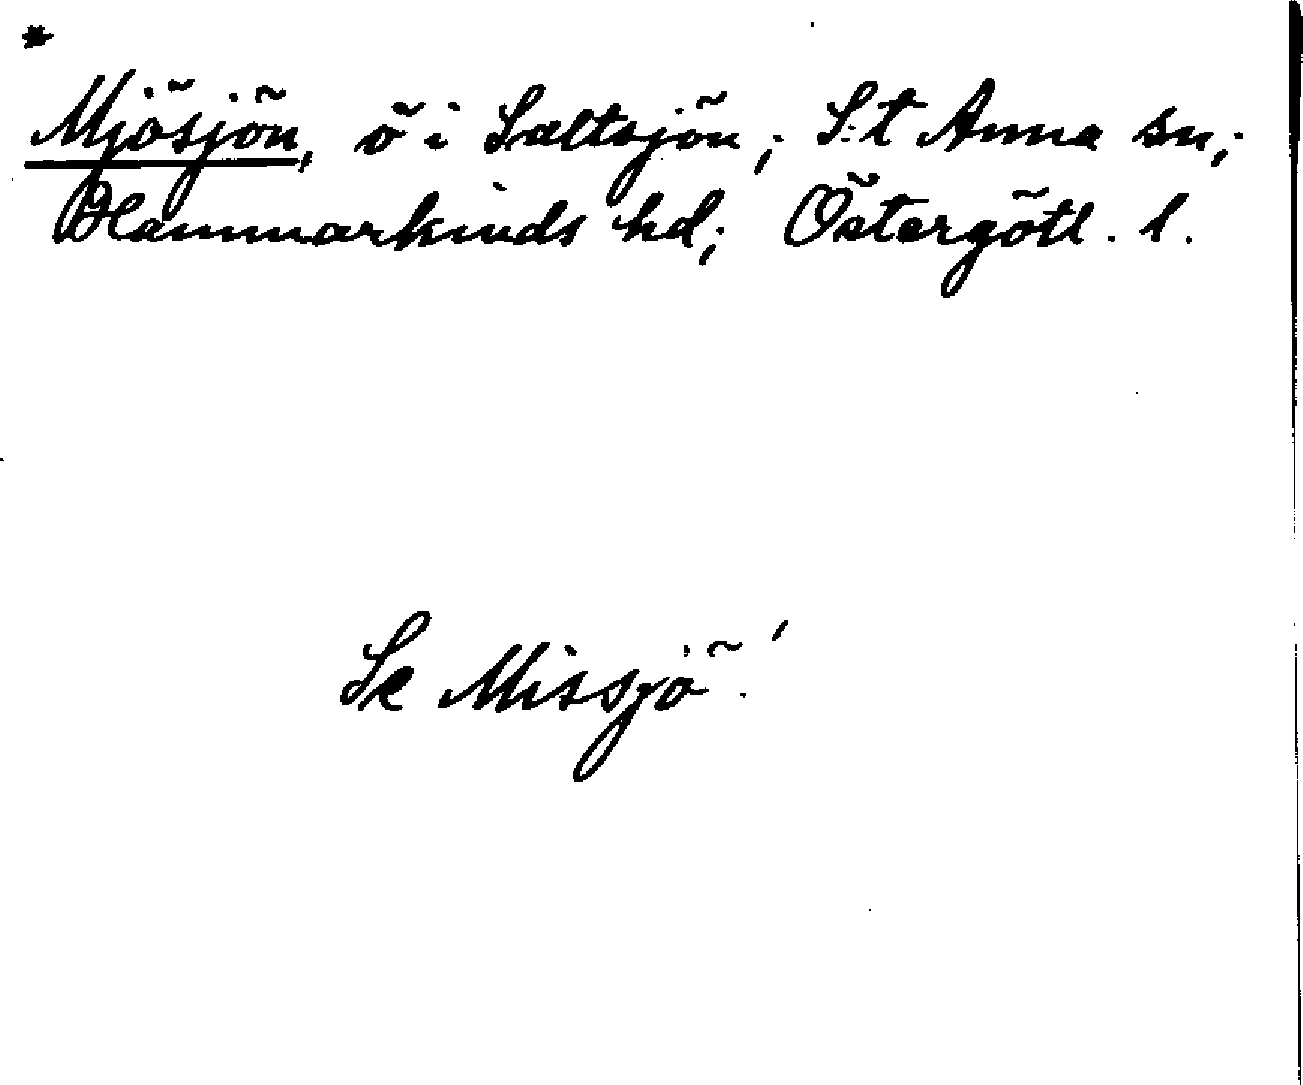 *
Mjösjön, ö i Saltsjön; S:t Anna sn;
Hammarkinds hd; Östergötl. l.
Se Missjö!